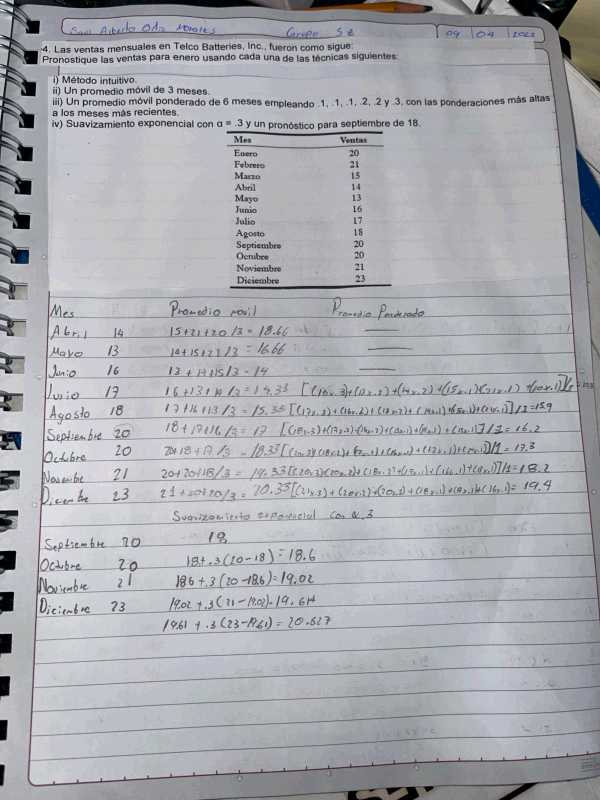 Saul Alberto Ortiz Morales Grupo 09 09 2025
4. Las ventas mensuales en Telco Batteries, Inc., fueron como sigue:
Pronostique las ventas para enero usando cada una de las técnicas siguientes:
i) Método intuitivo.
ii) Un promedio móvil de 3 meses.
iii) Un promedio móvil ponderado de 6 meses empleando .1, .1, .1, .2, .2 y .3, con las ponderaciones más altas
a los meses más recientes.
iv) Suavizamiento exponencial con α = .3 y un pronóstico para septiembre de 18.
Mes Ventas
Enero 20
Febrero 21
Marzo 15
Abril 14
Mayo 13
Junio 16
Julio 17
Agosto 18
Septiembre 20
Octubre 20
Noviembre 21
Diciembre 23
Mes Promedio movil Promedio Ponderado
Abril 14 15+21+20/3 = 18.66 —
Mayo 13 14+15+21/3 = 16.66 —
Junio 16 13+14+15/3 - 14 —
Julio 17 16+13+14/3 = 14.33
Agosto 18 17+16+13/3 = 15.33 =15.9
Septiembre 20 18+17+16/3 = 17 = 16.2
Octubre 20 20+18+17/3 = 18.33 = 17.3
Noviembre 21 20+20+18/3 = 19.33 = 18.2
Diciembre 23 21+20+20/3 = 20.33 = 19.4
Suavizamiento exponencial con α.3
Septiembre 20 18
Octubre 20 18+.3(20-18) = 18.6
Noviembre 21 18.6 +.3(20-18.6) = 19.02
Diciembre 23 19.02 +.3(21-19.02)=19.614
19.61 + .3(23-19.61) = 20.627